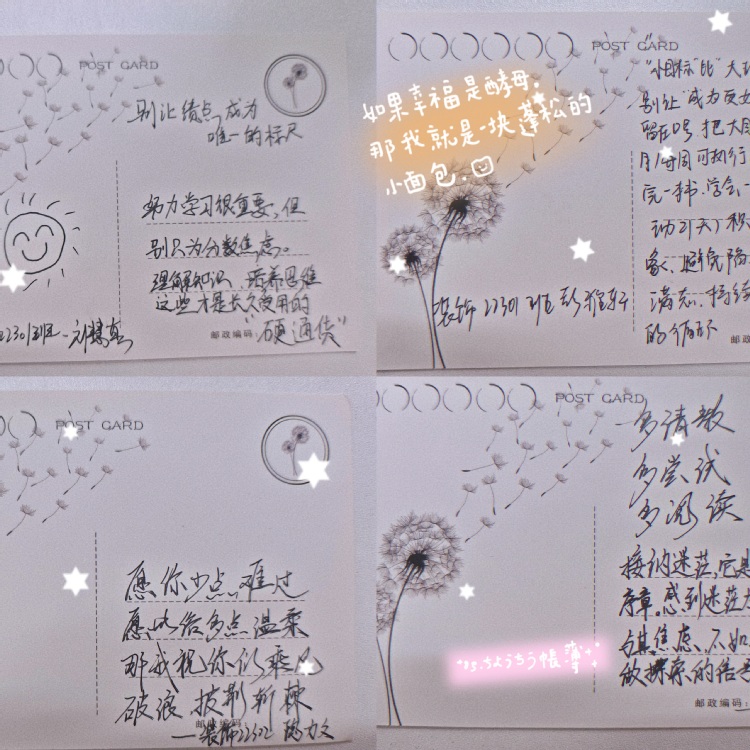 POST CARD
别让绩点成为
唯一的标尺
努力学习很重要,但
别只为分数焦虑。
理解知识、培养思维
这些才是长久使用的
"硬通货"
邮政编码:
POST CARD
如果幸福是酵母。
那我就是一块蓬松的
小面包.
"小目标"比"大
别让"成为
留在口号 把大目
月/每周可执行
完一书.学会一
动21天)积
象、避免陷
满志、持续
的循环
装饰22301班
邮政
POST CARD
愿你少点难过
愿此后多点温柔
那我祝你们乘风
破浪 披荆斩棘
邮政编码:
——装饰22302
POST CARD
多请教
多尝试
多阅读
接纳迷茫,它是
序章。感到迷茫
与其焦虑、不如
做探索的
ちょうちょう帳簿
邮政编码: